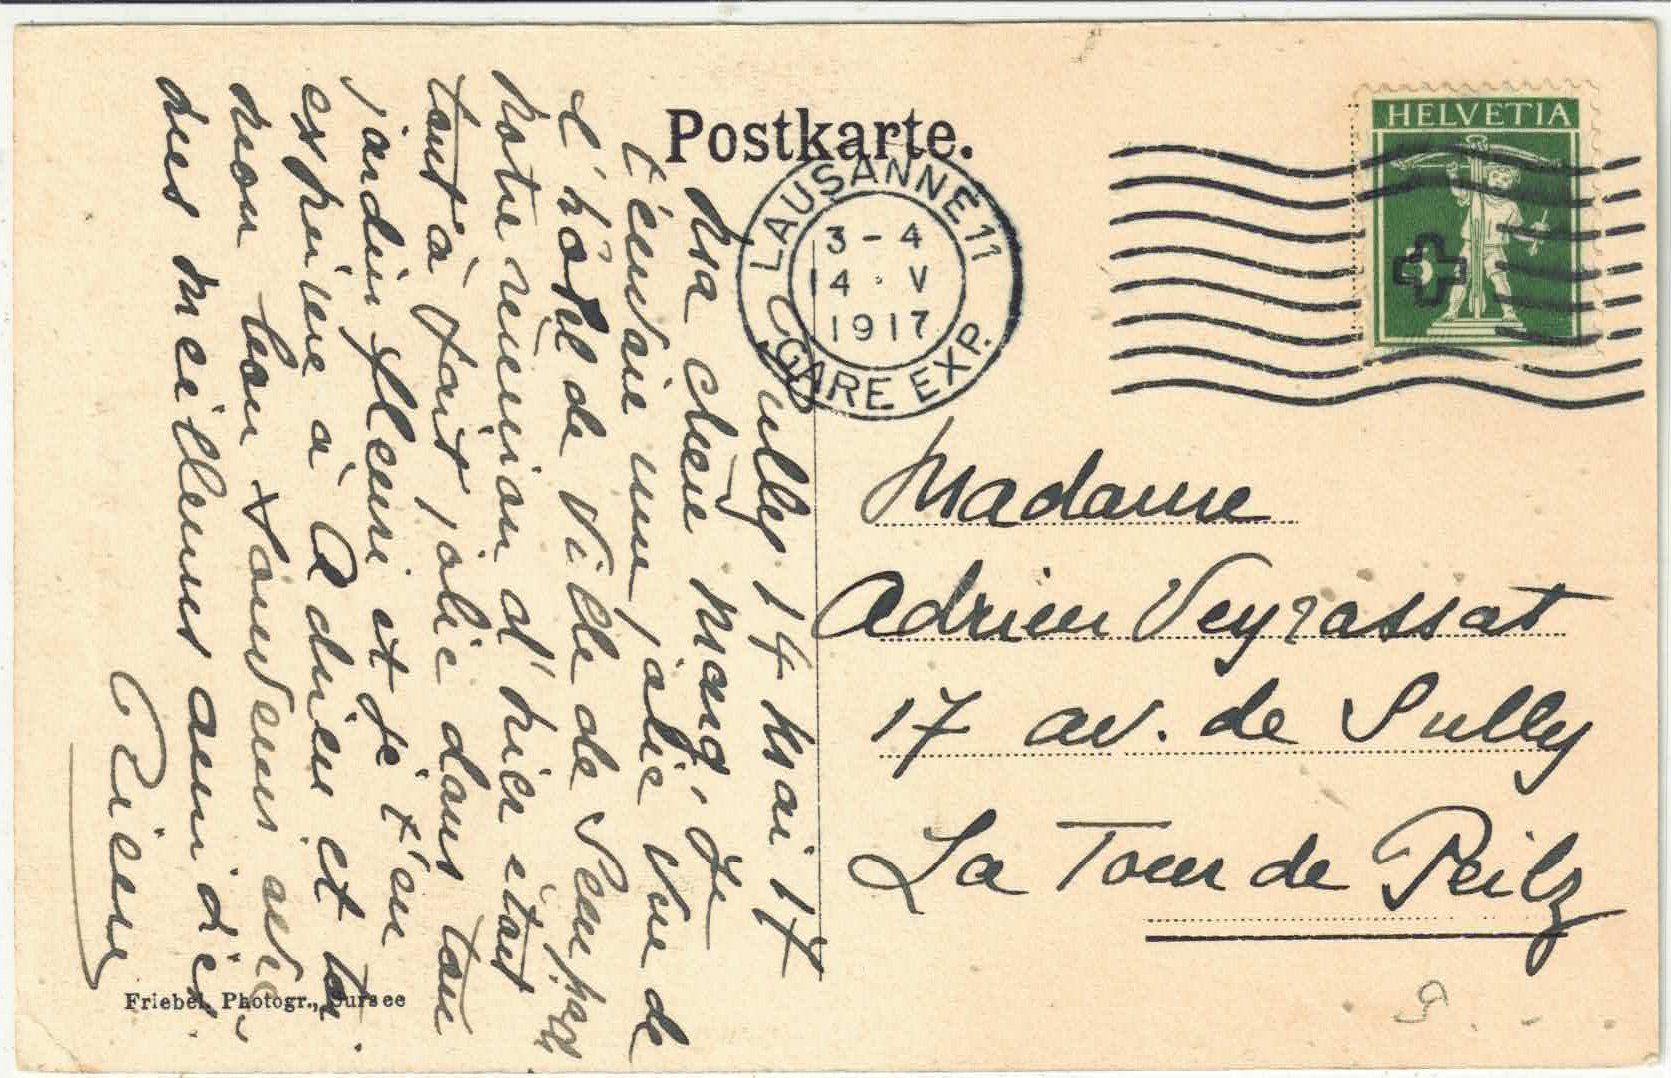 Postkarte.
HELVETIA
LAUSANNE 11
3 – 4
14 · V
1917
GARE EXP.
14 Mai 17
Ma chère Marg' Je
t'envoie une jolie vue de
l'hôtel de Ville de Sempach
Notre réunion d'hier était
tout à fait jolie dans ton
jardin fleuri et je t'en
exprime à Adrien et toi
mon bon souvenir avec
mes meilleures amitiés.
Madame
Adrien Veyrassat
17 av. de Sully
La Tour de Peilz
Friebel, Photogr., Sursee